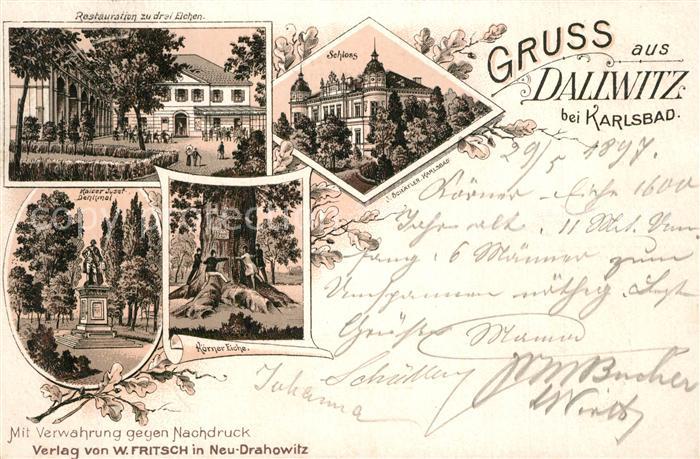 Restauration zu drei Eichen.
Schloss
GRUSS aus
DALLWITZ
bei KARLSBAD.
J. SCHÄFLER, KARLSBAD
29/5 1897.
Körner-Eiche 1600
Jahre alt. 11 Mt. Um-
fang. 6 Männer zum
Umspannen nöthig. Legt
Grüße Mama
Kaiser Josef-
Denkmal
Körner Eiche.
Johanna
Bucher
Mit Verwahrung gegen Nachdruck
Verlag von W. FRITSCH in Neu-Drahowitz